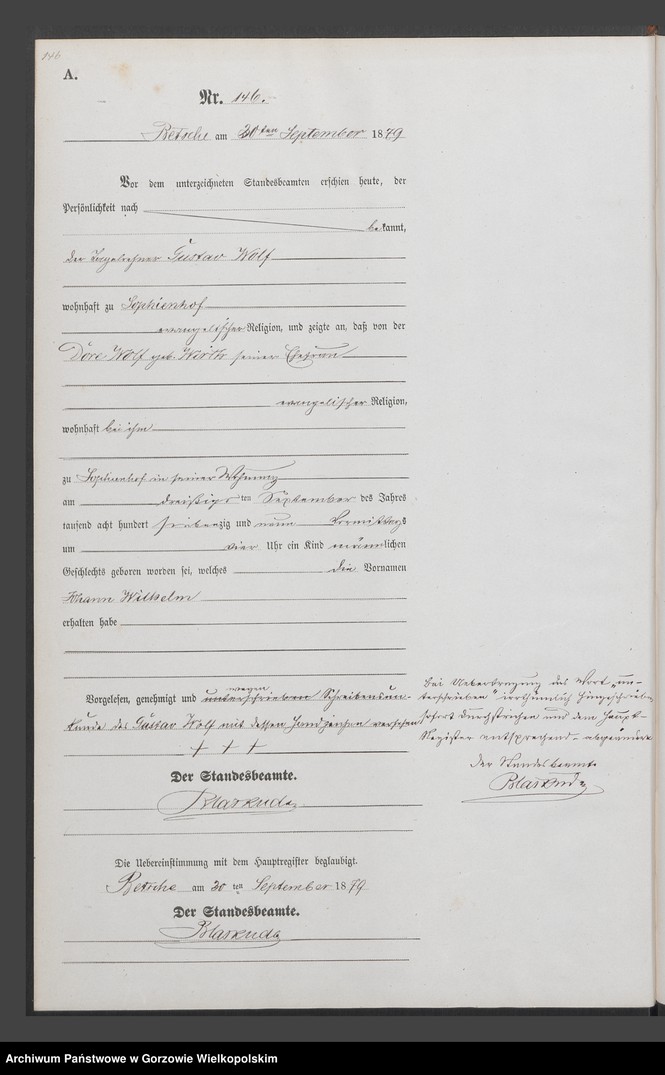 146
A.
Nr. 146.
Betsche am 30ten September 1879
Vor dem unterzeichneten Standesbeamten erschien heute, der
Persönlichkeit nach
bekannt,
der Tagelöhner Gustav Wolf
wohnhaft zu Sophienhof
evangelischer Religion, und zeigte an, daß von der
Dore Wolf geb. Wirth seiner Ehefrau
evangelischer Religion,
wohnhaft bei ihm
zu Sophienhof in seiner Wohnung
am dreißigsten September des Jahres
tausend acht hundert siebenzig und neun Vormittags
um vier Uhr ein Kind männlichen
Geschlechts geboren worden sei, welches die Vornamen
Johann Wilhelm
erhalten habe
Vorgelesen, genehmigt und unterschrieben wegen Schreibensun-
kunde des Gustav Wolf mit dessen Handzeichen versehen
+ + +
Der Standesbeamte.
Die Uebereinstimmung mit dem Hauptregister beglaubigt.
Betsche am 30 ten September 1879
Der Standesbeamte.
Bei Uebertragung das Wort „un-
terschrieben" irrthümlich hingeschrieben
sofort durchstrichen und dem Haupt-
Register entsprechend abgeändert
Der Standesbeamte
Archiwum Państwowe w Gorzowie Wielkopolskim